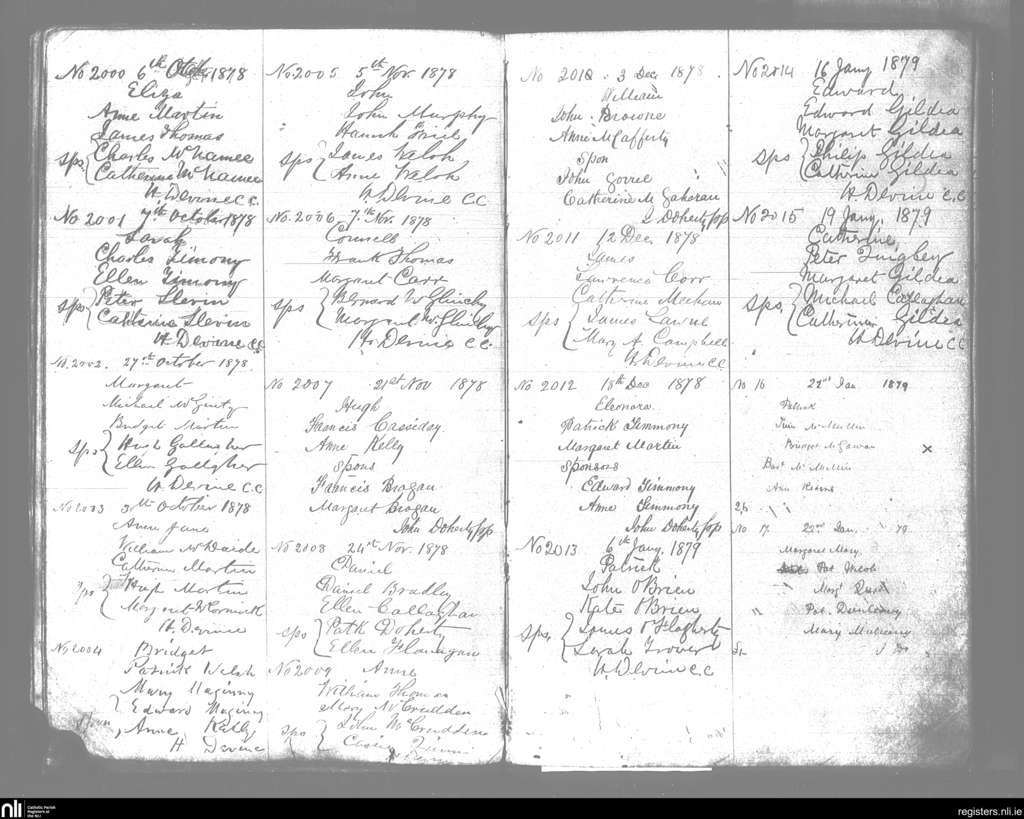 No 2000 6th 1878
Eliza
Anne Martin
James Thomas
Sps Charles McNamee
Catherine McNamee
H. Devine C.C.
No 2001 7th October 1878
Sarah
Charles Timony
Ellen Timony
Sps Peter Slevin
Catherine Slevin
H. Devine CC
No. 2002. 27th October 1878
Margaret
Michael McGinty
Bridget Martin
Sps Hugh Gallagher
Ellen Gallagher
H. Devine C.C
No 2003 October 1878
Anne Jane
William McDaide
Catherine Martin
Sps Hugh Martin
Margaret McCormick
H. Devine
No 2004 Bridget
Patrick Welsh
Mary Maginny
Edward Maginny
Anne Kelly
H Devine
No 2005 5th Nov. 1878
John
John Murphy
Hannah Friel
Sps James Walsh
Anne Walsh
H. Devine CC
No. 2006. 7th Nov. 1878
Frank Thomas
Margaret Carr
Sps Bernard McGlinchy
Margaret McGlinchy
H. Devine C.C.
No 2007 21st Nov 1878
Hugh
Francis Cassiday
Anne Kelly
Spons
Francis Brogan
Margaret Brogan
John Doherty pp
No 2008 24th Nov. 1878
Daniel
Daniel Bradley
Ellen Callaghan
Sps Patk Doherty
Ellen Flanigan
No 2009 Anne
William Thomas
Mary McCrudden
Sps John McCrudden
No 2010. 3 Dec 1878.
William
John Browne
Annie McCafferty
Spon
John Gorrel
Catherine McGaheran
J. Doherty pp
No 2011 12 Dec. 1878
James
Lawrence Corr
Catherine Meehan
Sps James Lawne
Mary A. Campbell
H. Devine CC
No 2012 18th Dec 1878
Eleonora.
Patrick Timmony
Margaret Martin
Sponsors
Edward Timmony
Anne Timmony
John Doherty pp
No 2013 6th Jany. 1879
Patrick
John O'Brien
Kate O'Brien
Sps. James O'Flagherty
Sarah Trovers
H. Devine C.C
No 2014 16 Jany 1879
Edward
Edward Gildea
Margaret Gildea
Sps Philip Gildea
Catherine Gildea
H. Devine C.C
No 2015 19 Jany. 1879
Catherine,
Peter Quigley
Margaret Gildea
Sps, Michael Callaghan
Catherine Gildea
H. Devine CC
No 16 22nd Jan 1879
Patrick
McMullin
Bridget McGowan x
Bart McMullin
Ann Kearns
No 17. 22nd Jan. 79
Margaret Mary.
Pat
Mary
Pat.
Mary
J Do
nli Catholic Parish Registers at the NLI
registers.nli.ie